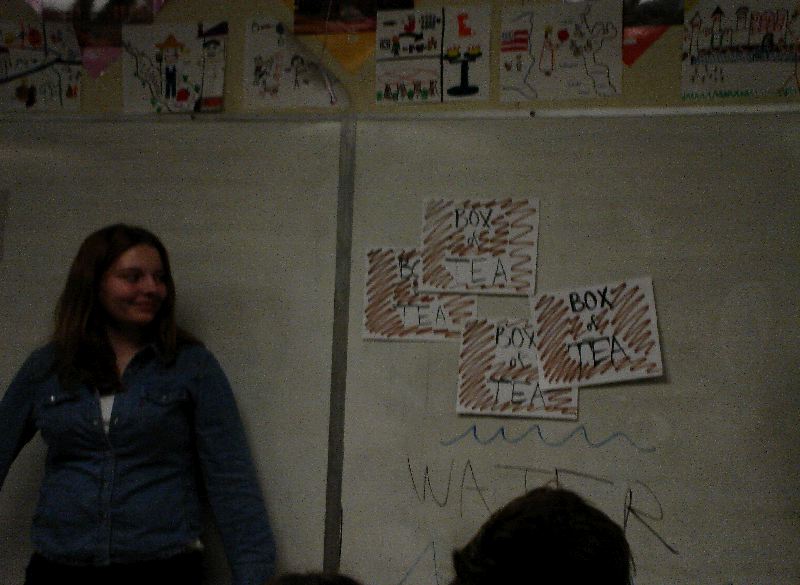 BOX
of
TEA
BO
TEA
BOX
of
TEA
BOX
of
TEA
WATER